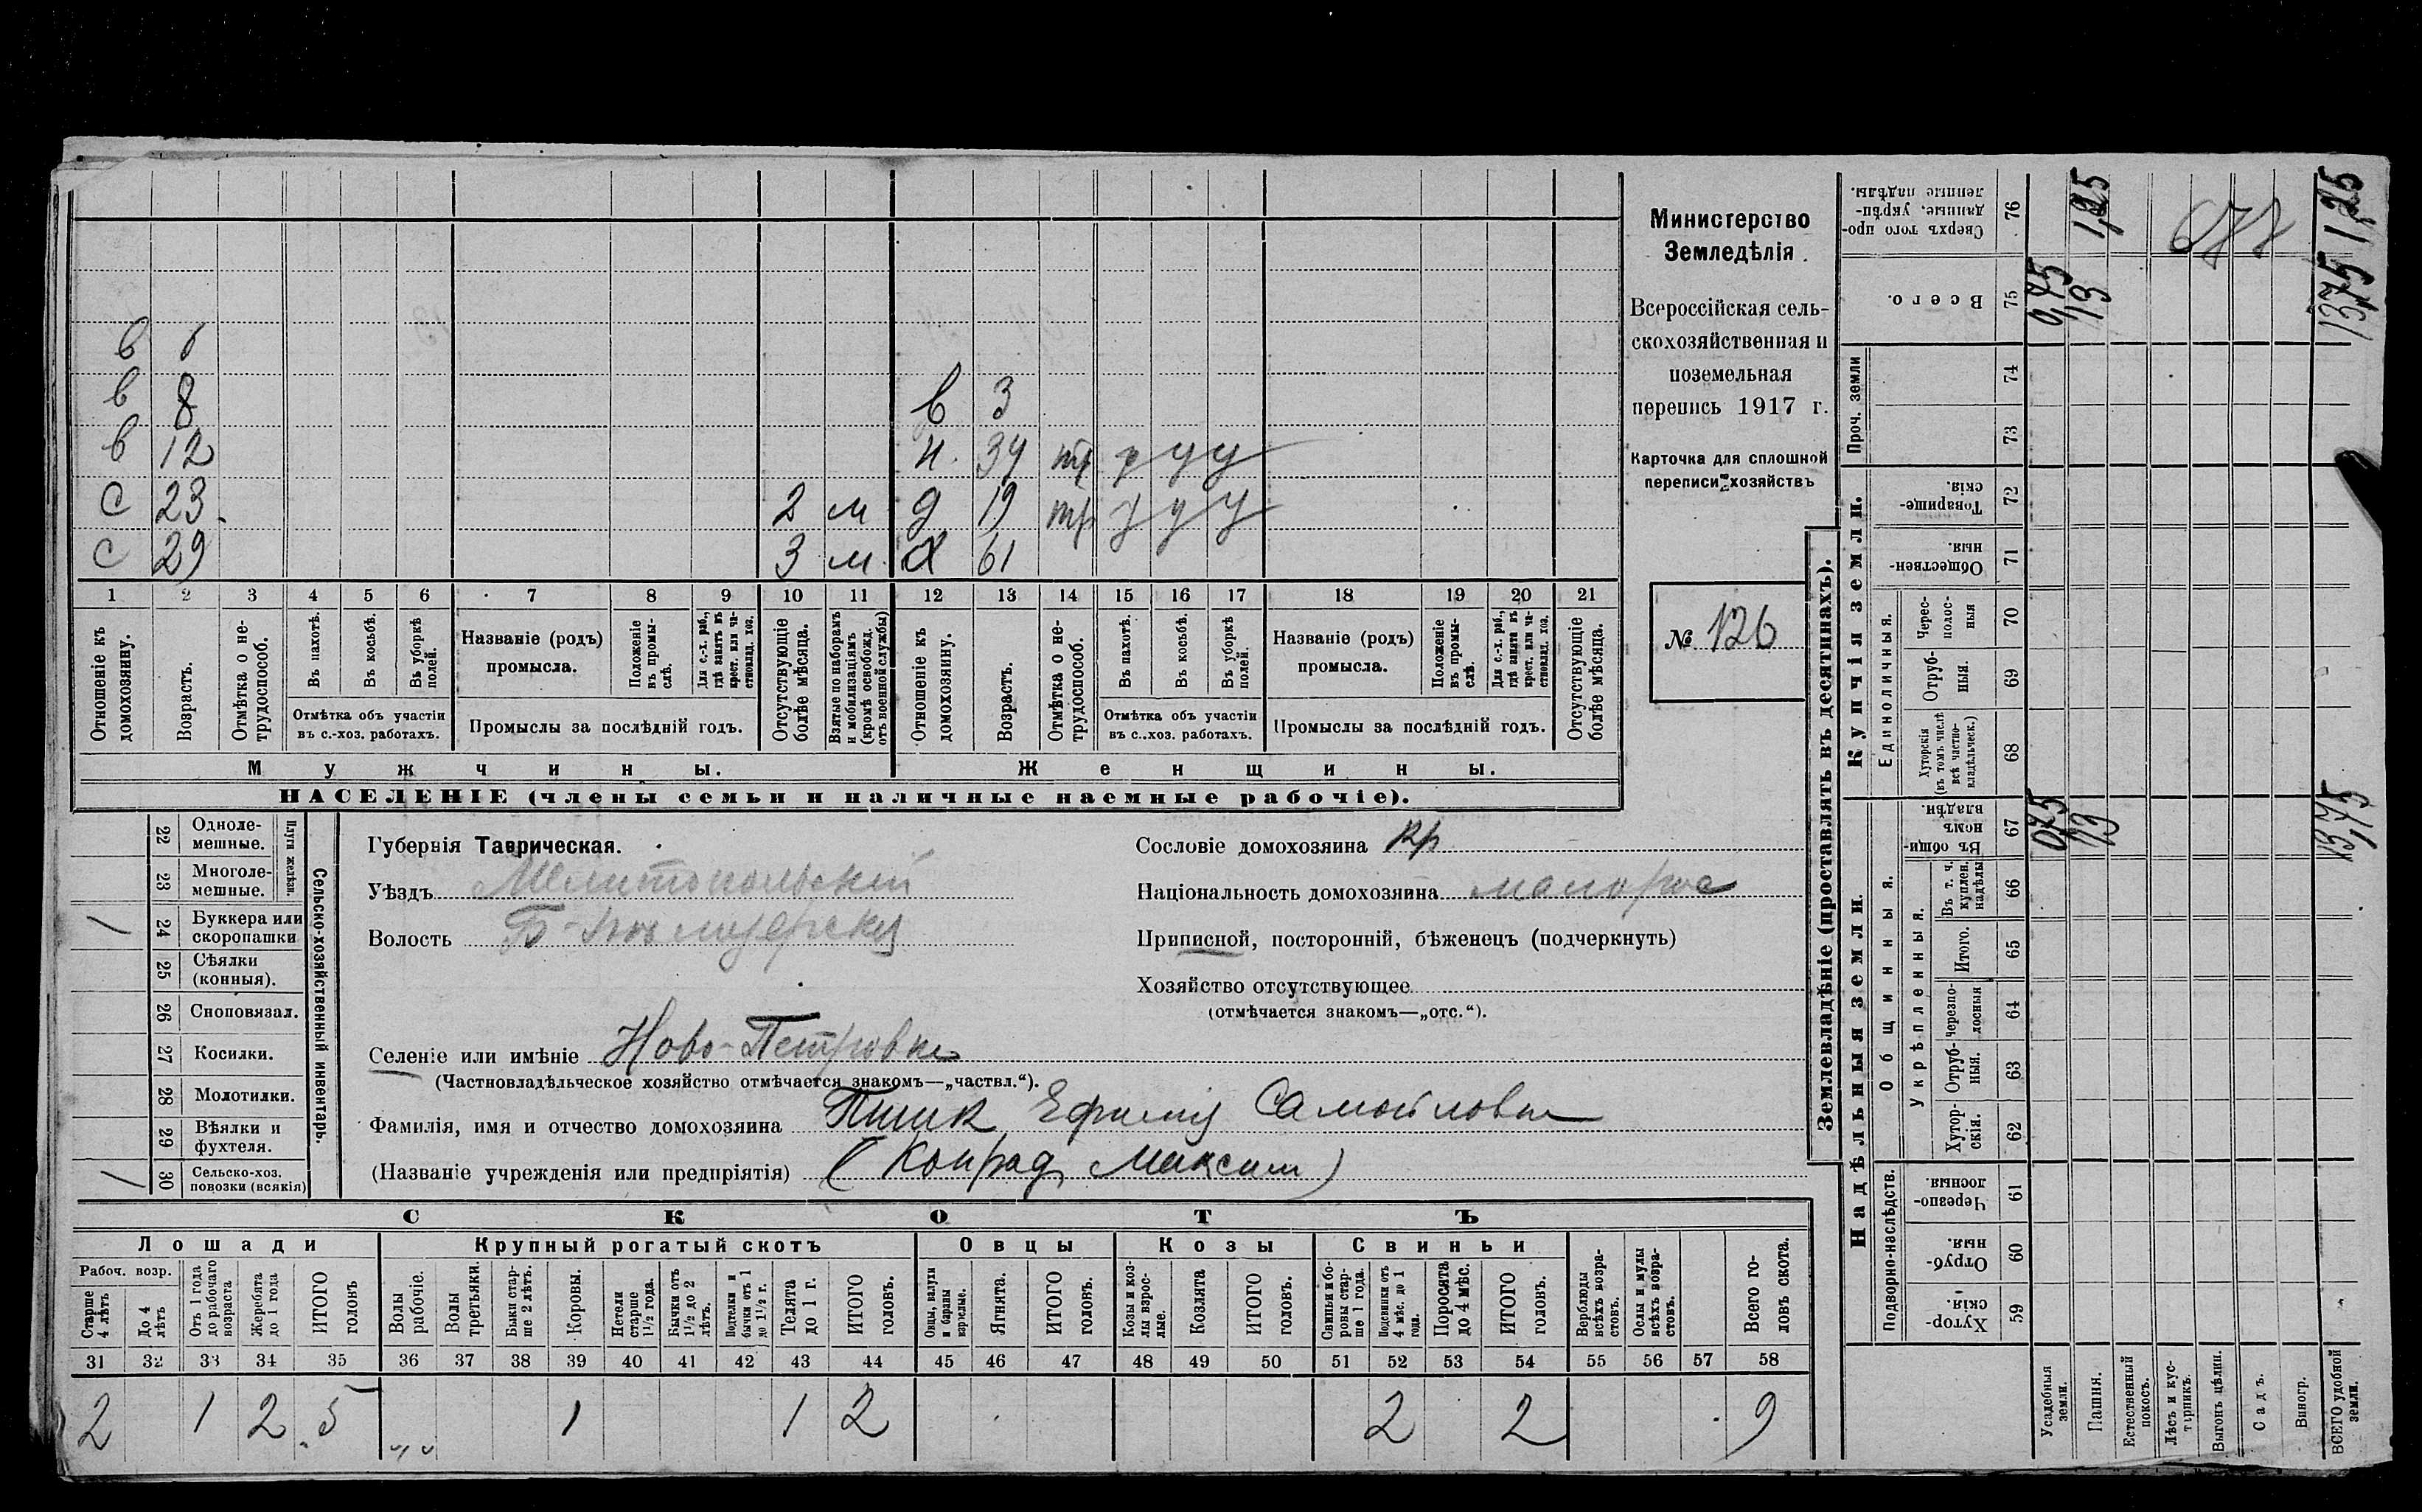 в 6
в 8 в 3
в 12 н. 34 тр р у у
с 23 2 м д 19 тр р у у
с 29 3 м. х 61
1 2 3 4 5 6 7 8 9 10 11 12 13 14 15 16 17 18 19 20 21
Отношеніе къ домохозяину.
Возрастъ.
Отмѣтка о не-трудоспособ.
Въ пахотѣ.
Въ косьбѣ.
Въ уборкѣ полей.
Отмѣтка объ участіи въ с.-хоз. работахъ.
Названіе (родъ) промысла.
Положеніе въ промы-слѣ.
Для с.-х. раб., гдѣ занятъ въ крест. или ча-стновлад. хоз.
Промыслы за послѣдній годъ.
Отсутствующіе болѣе мѣсяца.
Взятые по наборамъ и мобилизаціямъ (кромѣ освобожд. отъ военной службы)
Отношеніе къ домохозяину.
Возрастъ.
Отмѣтка о не-трудоспособ.
Въ пахотѣ.
Въ косьбѣ.
Въ уборкѣ полей.
Отмѣтка объ участіи въ с..хоз. работахъ.
Названіе (родъ) промысла.
Положеніе въ промы-слѣ.
Для с.-х. раб., гдѣ занята въ крест. или ча-стновлад. хоз.
Промыслы за послѣдній годъ.
Отсутствующіе болѣе мѣсяца.
Мужчины. Женщины.
НАСЕЛЕНІЕ (члены семьи и наличные наемные рабочіе).
Министерство
Земледѣлія.
Всероссійская сель-
скохозяйственная и
поземельная
перепись 1917 г.
Карточка для сплошной
переписи хозяйствъ
№ 126
Сельско-хозяйственный инвентарь.
Плуги желѣзн.
22 Одноле-мешные.
23 Многоле-мешные.
/ 24 Буккера или скоропашки
25 Сѣялки (конныя).
26 Сноповязал.
27 Косилки.
28 Молотилки.
29 Вѣялки и фухтеля.
/ 30 Сельско-хоз. повозки (всякія)
Губернія Таврическая.
Уѣздъ Мелитопольскій
Волость
Селеніе или имѣніе Ново-Петровка
(Частновладѣльческое хозяйство отмѣчается знакомъ—„частвл.“).
Фамилія, имя и отчество домохозяина Пшик Ефимія Самойловна
(Названіе учрежденія или предпріятія) (Конрад Максим)
Сословіе домохозяина кр
Національность домохозяина малорос
Приписной, посторонній, бѣженецъ (подчеркнуть)
Хозяйство отсутствующее
(отмѣчается знакомъ—„отс.“).
СКОТЪ
Лошади Крупный рогатый скотъ Овцы Козы Свиньи
Рабоч. возр.
Старше 4 лѣтъ
До 4 лѣтъ
Отъ 1 года до рабочаго возраста
Жеребята до 1 года
ИТОГО головъ
Волы рабочіе.
Волы третьяки.
Быки стар-ше 2 лѣтъ.
Коровы.
Нетели старше 1½ года.
Бычки отъ 1½ до 2 лѣтъ.
Подтелки и бычки отъ 1 до 1½ г.
Телята до 1 г.
ИТОГО головъ.
Овцы, валухи и бараны взрослые.
Ягнята.
ИТОГО головъ.
Козы и коз-лы взрос-лые.
Козлята
ИТОГО головъ.
Свиньи и бо-ровы стар-ше 1 года.
Подсвинки отъ 4 мѣс. до 1 года.
Поросята до 4 мѣс.
ИТОГО головъ.
Верблюды всѣхъ возра-стовъ.
Ослы и мулы всѣхъ возра-стовъ.
Всего го-ловъ скота.
31 32 33 34 35 36 37 38 39 40 41 42 43 44 45 46 47 48 49 50 51 52 53 54 55 56 57 58
2 1 2 5 1 1 2 2 2 9
Землевладѣніе (проставлять въ десятинахъ).
Надѣльныя земли. Купчія земли. Проч. земли
Подворно-наслѣдств. Общинныя. Укрѣпленныя. Единоличныя.
Сверхъ того про-данные, укрѣп-ленные надѣлы. 76 1,25
Всего. 75 0,75 13 13,75 1,25
74
73
Товарище-скія. 72
Обществен-ныя 71
Черес-полос-ныя 70
Отруб-ныя. 69
Хуторскія (въ томъ числѣ всѣ частно-владѣльческ.) 68
Въ общи-номъ владѣн. 67 0,75 13 13,75
Въ т. ч. куплен. надѣлы 66
Итого. 65
Черезпо-лосныя 64
Отруб-ныя. 63
Хутор-скія. 62
Черезпо-лосныя. 61
Отруб-ныя. 60
Хутор-скія. 59
Усадебныя земли.
Пашня.
Естественный покосъ.
Лѣсъ и кус-тарникъ.
Выгонъ цѣлин.
Садъ.
Виногр.
ВСЕГО удобной земли.